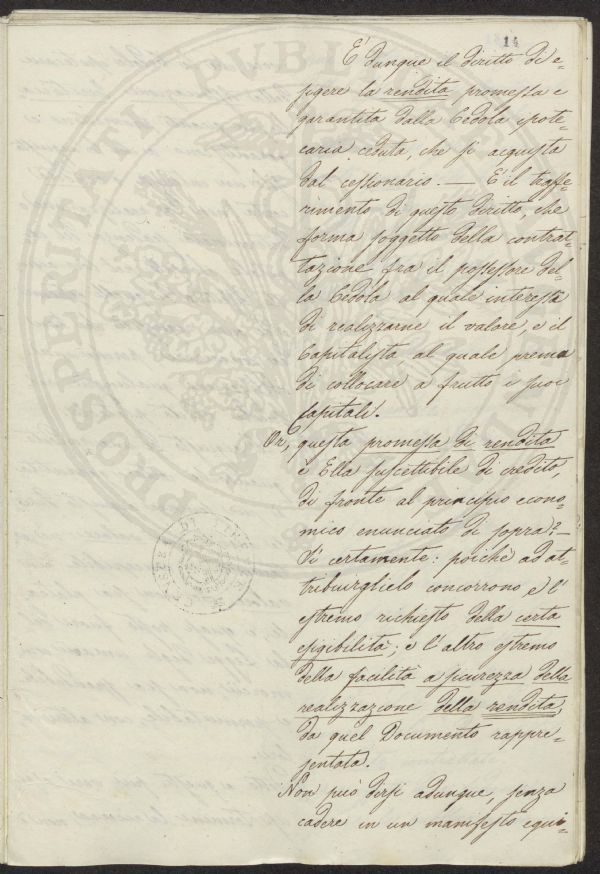 14
E' dunque il diritto di e-
sigere la rendita promessa e
garantita dalla Cedola ipote-
caria ceduta, che si acquista
dal cessionario. — E' il trasfe-
rimento di questo diritto, che
forma soggetto della contrat-
tazione fra il possessore del-
la Cedola al quale interessa
di realizzarne il valore, e il
Capitalista al quale preme
di collocare a frutto i suoi
Capitali.
Or, questa promessa di rendita
è Ella suscettibile di credito,
di fronte al principio econo-
mico enunciato di sopra? —
Sì certamente: poichè ad at-
tribuirglielo concorrono e l'
estremo richiesto della certa
esigibilità; e l'altro estremo
della facilità a sicurezza della
realizzazione della rendita,
da quel Documento rappre-
sentata.
Non può dirsi adunque, senza
cadere in un manifesto equi-
PROSPERITATI PUBLI